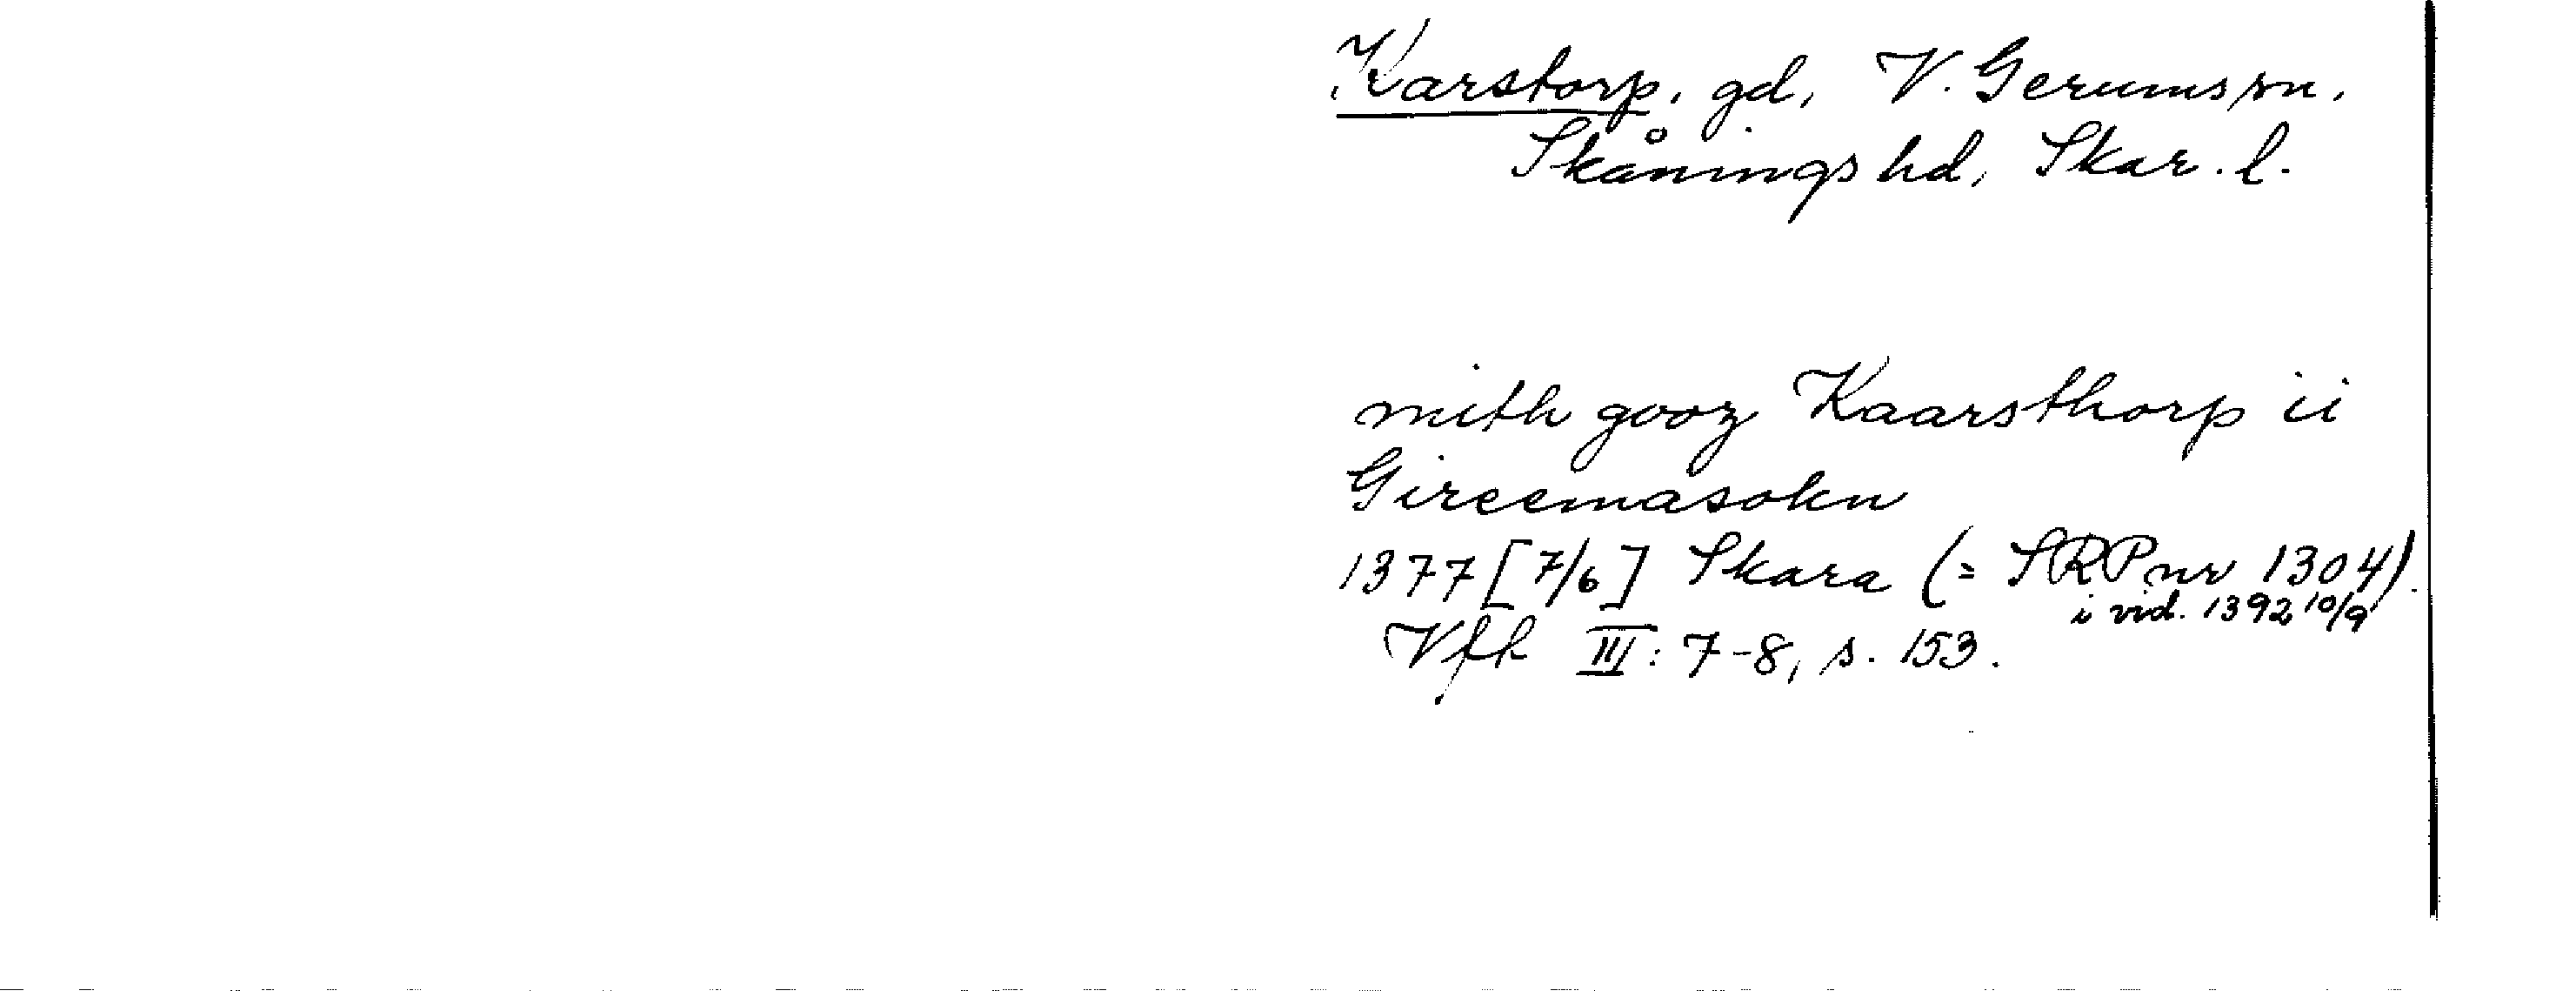 Karstorp, gd, V. Gerums sn,
Skånings hd, Skar. l.
mith gooz Kaarsthorp ii
Gireemasokn
1377 [7/6] Skara (= SRP nr 1304).
i vid. 1392 10/9
Vfh III: 7-8, s. 153.